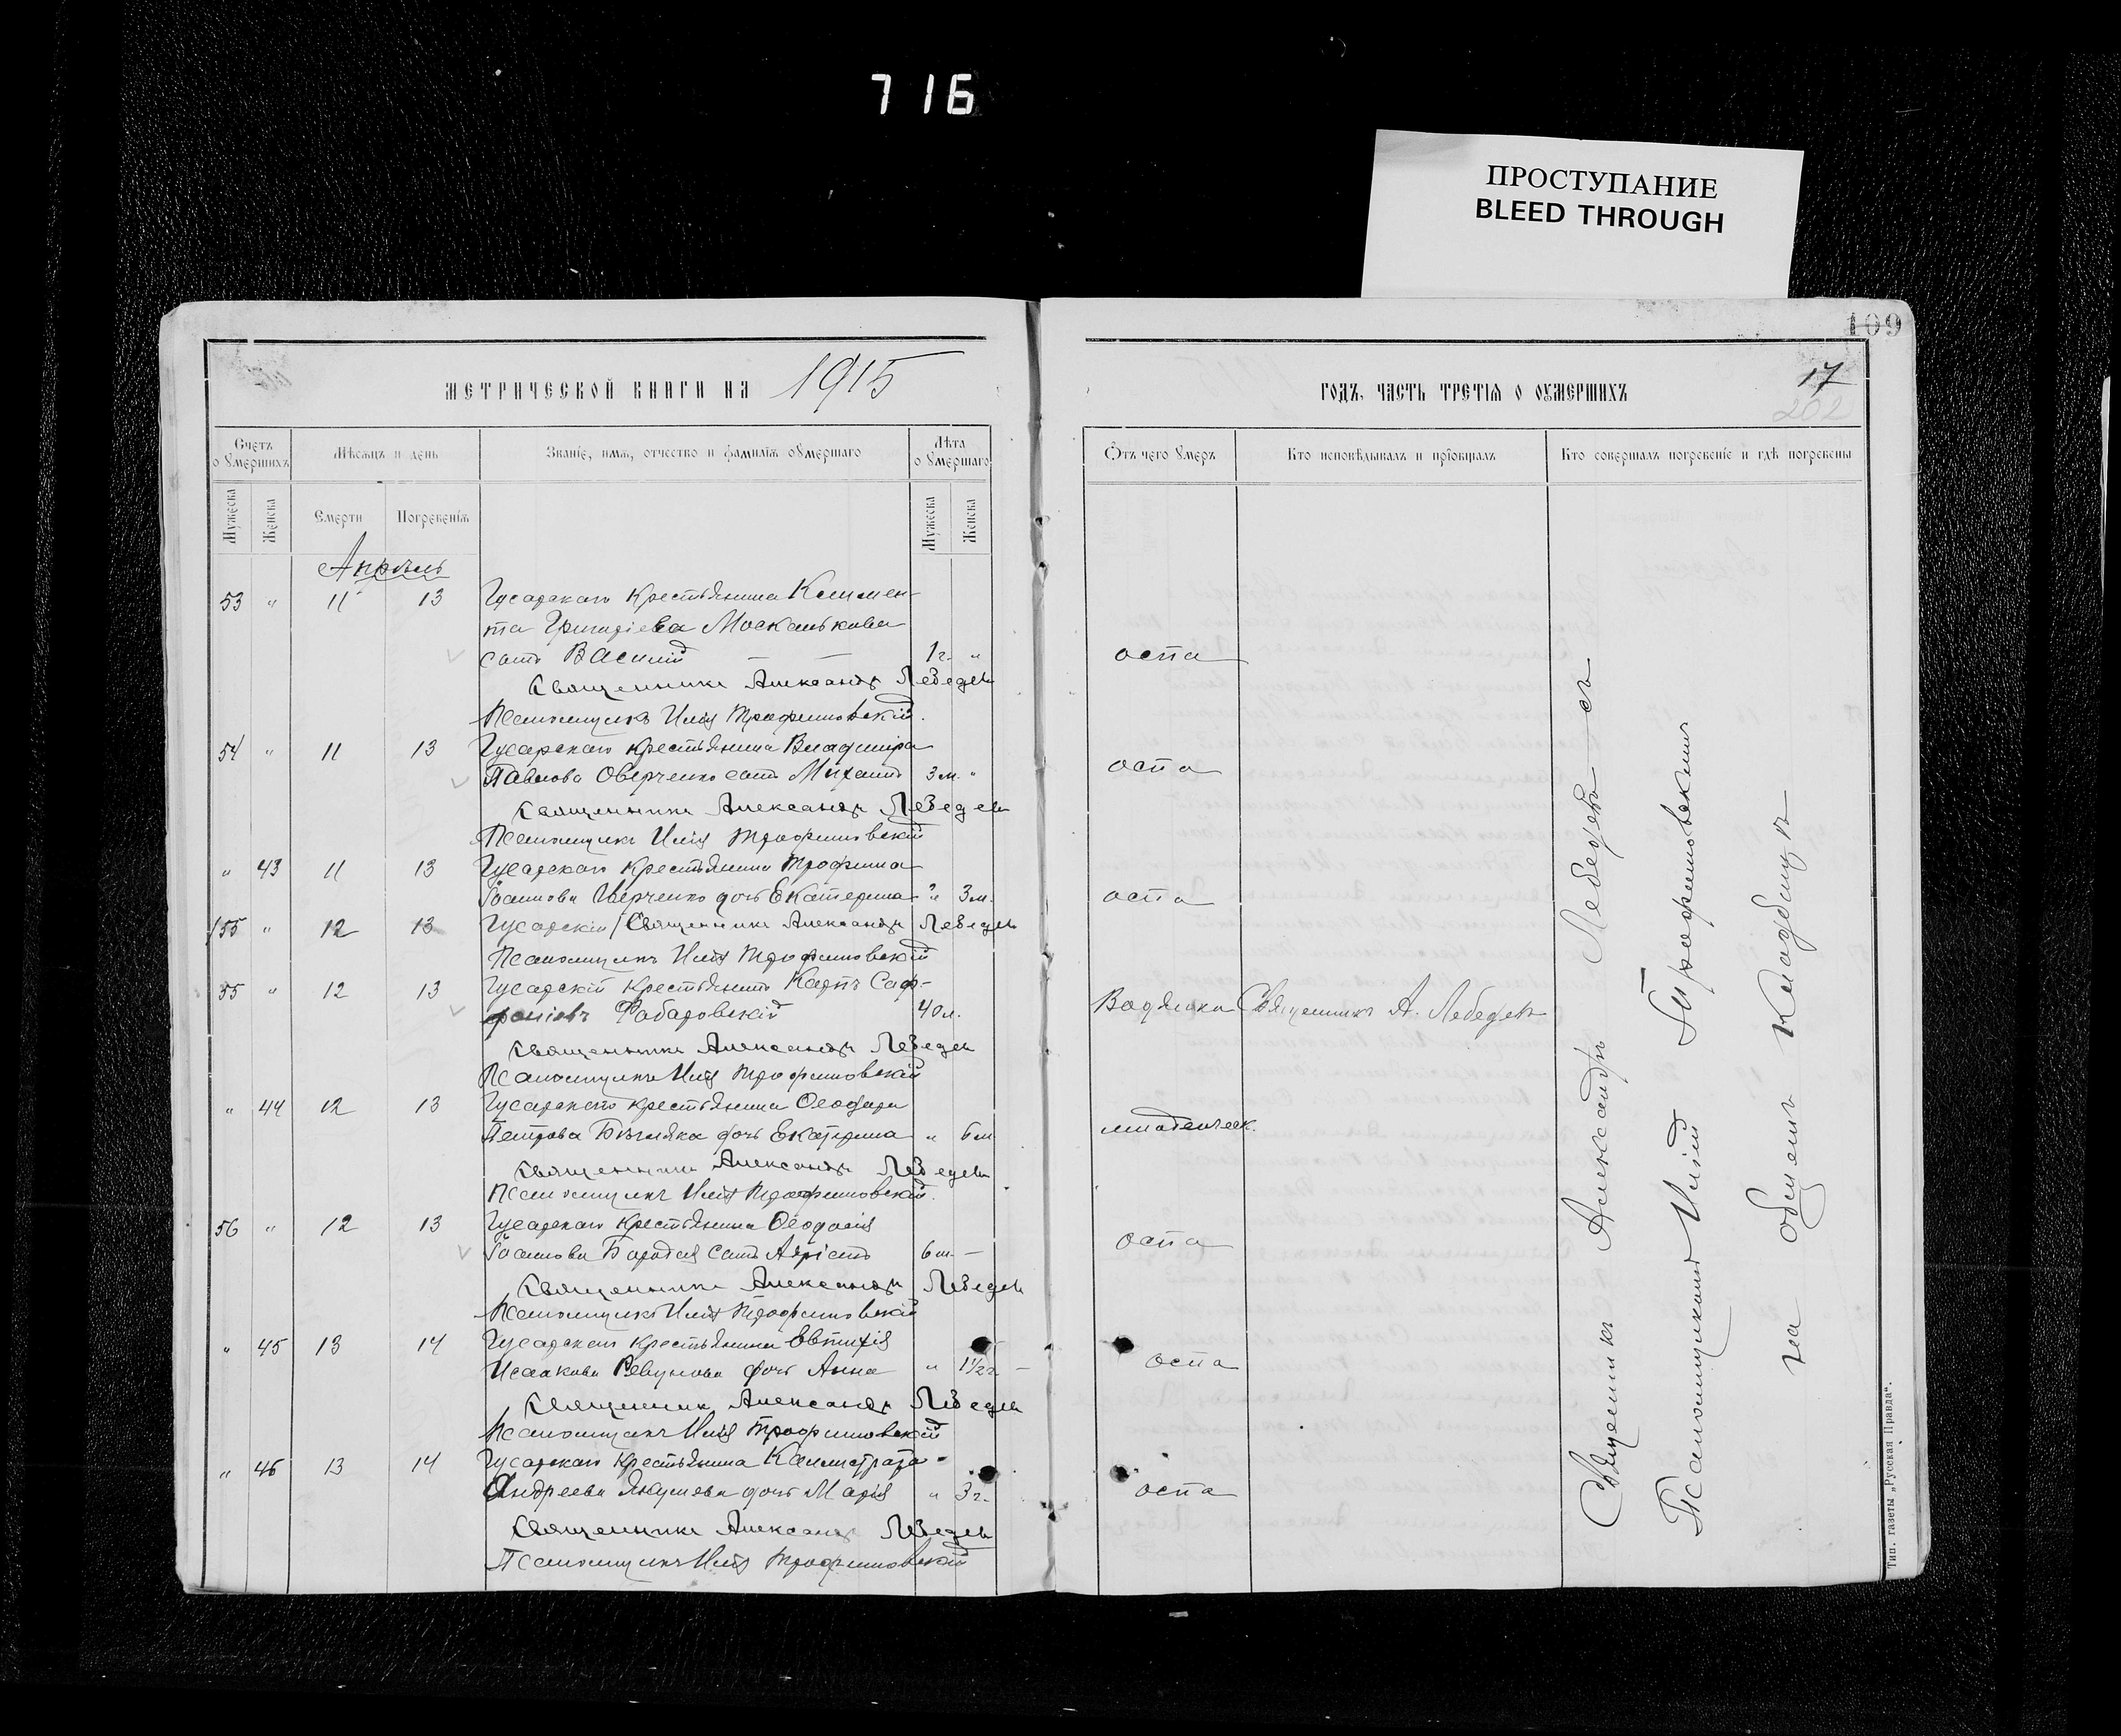 716
ПРОСТУПАНИЕ
BLEED THROUGH
109
МЕТРИЧЕСКОЙ КНИГИ НА 1915
ГОДЪ, ЧАСТЬ ТРЕТІЯ О ОУМЕРШИХЪ
17
202
Счетъ о умершихъ
Мѣсяцъ и день
Званіе, имя, отчество и фамилія оумершаго
Лѣта оумершаго
Отъ чего умеръ
Кто исповѣдывалъ и пріобщалъ
Кто совершалъ погребеніе и гдѣ погребены
Мужеска Женска Смерти Погребенія Мужеска Женска
Апрѣль
53 " 11 13 Гусарскаго крестьянина Климен-
та Григоріева Москалькова
сынъ Василій — — 1 г. " оспа
Священникъ Александръ Лебедевъ
Псаломщикъ Илія Трофимовскій.
54 " 11 13 Гусарскаго крестьянина Владиміра
Павлова Оверченко сынъ Михаилъ 3 м. " оспа
Священникъ Александръ Лебедевъ
Псаломщикъ Илія Трофимовскій
" 43 11 13 Гусарскаго крестьянина Трофима
Іоаннова дочь Екатерина " 3 м. оспа
55 " 12 13 Гусарскій / Священникъ Александръ Лебедевъ
Псаломщикъ Илія Трофимовскій
55 " 12 13 Гусарскій крестьянинъ Карпъ Саф-
роніевъ 40 л. Водянка Священникъ А. Лебедевъ
Священникъ Александръ Лебедевъ
Псаломщикъ Илія Трофимовскій
" 44 12 13 Гусарскаго крестьянина Ѳеодора
Петрова дочь Екатерина " 6 м младенческ.
Священникъ Александръ Лебедевъ
Псаломщикъ Илія Трофимовскій.
56 " 12 13 Гусарскаго крестьянина Ѳеодосія
Іоаннова сынъ 6 м. — оспа
Священникъ Александръ Лебедевъ
Псаломщикъ Илія Трофимовскій
" 45 13 14 Гусарскаго крестьянина Евтихія
Исаакова Ревунова дочь Анна " 1 1/2 г. — оспа
Священникъ Александръ Лебедевъ
Псаломщикъ Илія Трофимовскій
" 46 13 14 Гусарскаго крестьянина Каллистрата
Андреева дочь Марія " 3 г. оспа
Священникъ Александръ Лебедевъ
Псаломщикъ Илія Трофимовскій
Священникъ Александръ Лебедевъ съ
Псаломщикомъ Иліей Трофимовскимъ
на общемъ кладбищѣ
Тип. газеты „Русская Правда“.